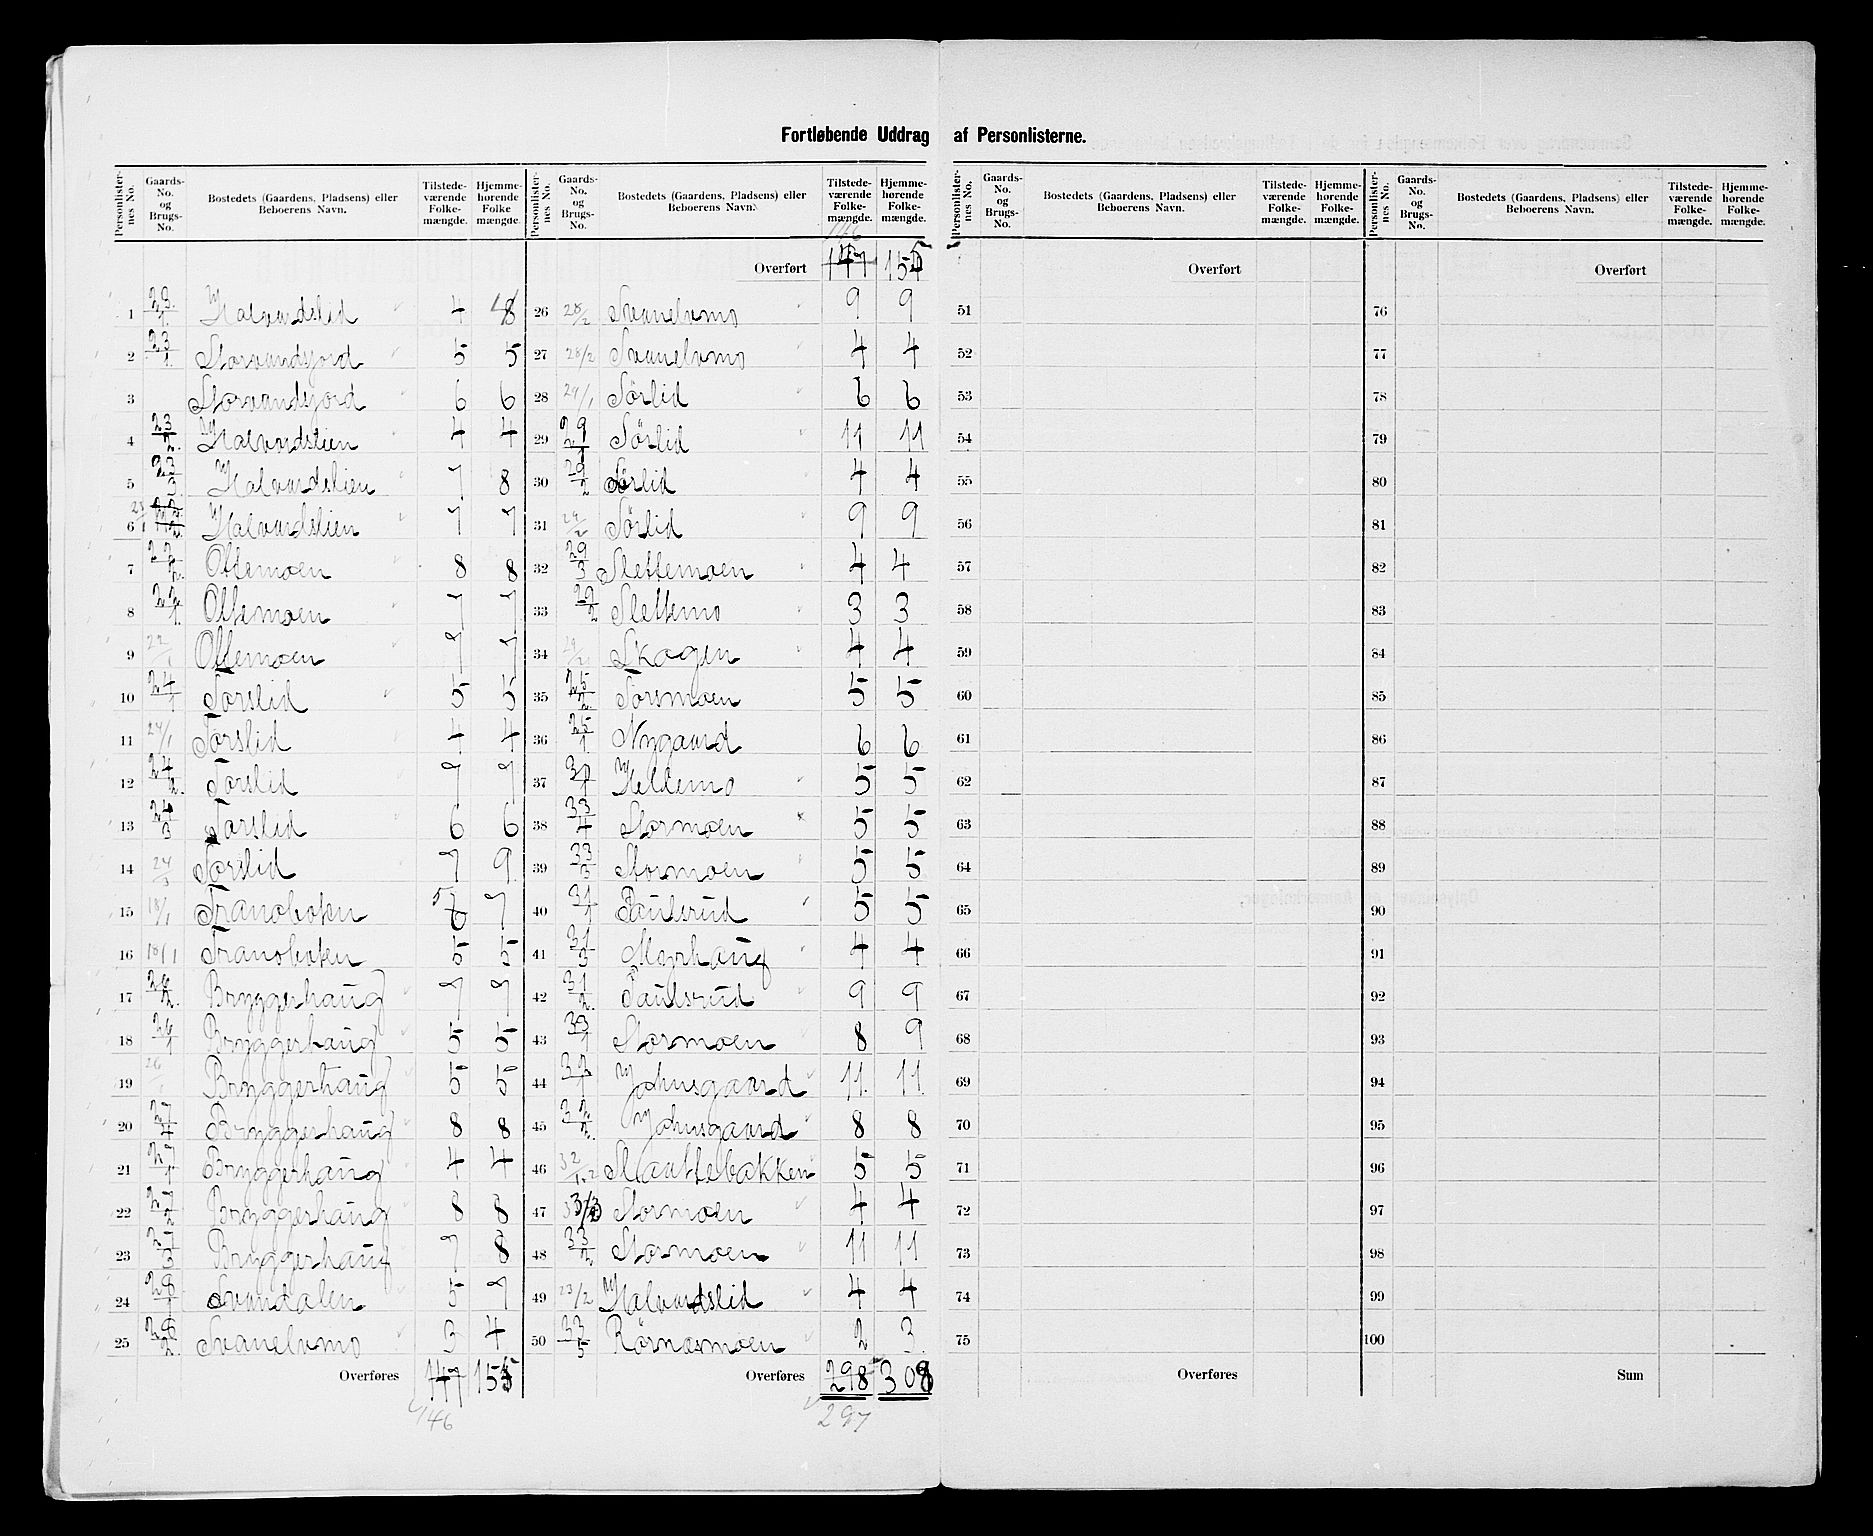 Fortløbende Uddrag af Personlisterne.
Personlister-nes No. | Gaards-No. og Brugs-No. | Bostedets (Gaardens, Pladsens) eller Beboerens Navn. | Tilstede-værende Folke-mængde. | Hjemme-hørende Folke-mængde.
1 28/1. Halvardslid 4 8
2 23/1. Storvandsjord 5 5
3 Storvandsjord 6 6
4 23/2. Halvardslien 4 4
5 23/3 Halvardslien 7 8
6 Halvardslien 7 7
7 22/2. Oftemoen 8 8
8 22/1. Oftemoen 7 7
9 22/1 Oftemoen 7 7
10 24/1 Torslid 5 5
11 24/1 Torslid 4 4
12 24/2. Torslid 7 7
13 24/3 Torslid 6 6
14 24/3 Torslid 7 9
15 18/1 Tranoboten 7
16 18/1 Tranoboten 5 5
17 26/2. Bryggerhaug 7 7
18 26/1 Bryggerhaug 5 5
19 26/1 Bryggerhaug 5 5
20 27/4 Bryggerhaug 8 8
21 27/1 Bryggerhaug 4 4
22 27/2 Bryggerhaug 8 8
23 27/3 Bryggerhaug 7 8
24 28/1 Svandalen 5 7
25 28/2. Svanelvmo 3 4
Overføres 147 155
146
146
Overført 147 155
26 28/2 Svanelvmo 9 9
27 28/2 Svanelvmo 4 4
28 29/1 Sörlid 6 6
29 29/1 Sörlid 11 11
30 29/2 Sörlid 4 4
31 29/2 Sörlid 9 9
32 29/3 Slettemoen 4 4
33 29/2 Slettemo 3 3
34 29/2 Skogen 4 4
35 25/2. Torsmoen 5 5
36 25/1. Nygaard 6 6
37 30/1 Heldemo 5 5
38 33/4 Stormoen 5 5
39 33/3 Stormoen 5 5
40 31/1 Paulsrud 5 5
41 31/3 Morhaug 4 4
42 31/2. Paulsrud 9 9
43 33/1 Stormoen 8 9
44 32/1 Johnsgaard 11. 11
45 32/2. Johnsgaard 8 8
46 32/1.2 Slaattebakken 5 5
47 Stormoen 4 4
48 33/2 Stormoen 11 11
49 23/2 Halvardslid 4 4
50 33/5 Rörnæsmoen 2 3
Overføres 298 308
297
Personlister-nes No. | Gaards-No. og Brugs-No. | Bostedets (Gaardens, Pladsens) eller Beboerens Navn. | Tilstede-værende Folke-mængde. | Hjemme-hørende Folke-mængde.
Overført
51
52
53
54
55
56
57
58
59
60
61
62
63
64
65
66
67
68
69
70
71
72
73
74
75
Overføres
Overført
76
77
78
79
80
81
82
83
84
85
86
87
88
89
90
91
92
93
94
95
96
97
98
99
100
Sum